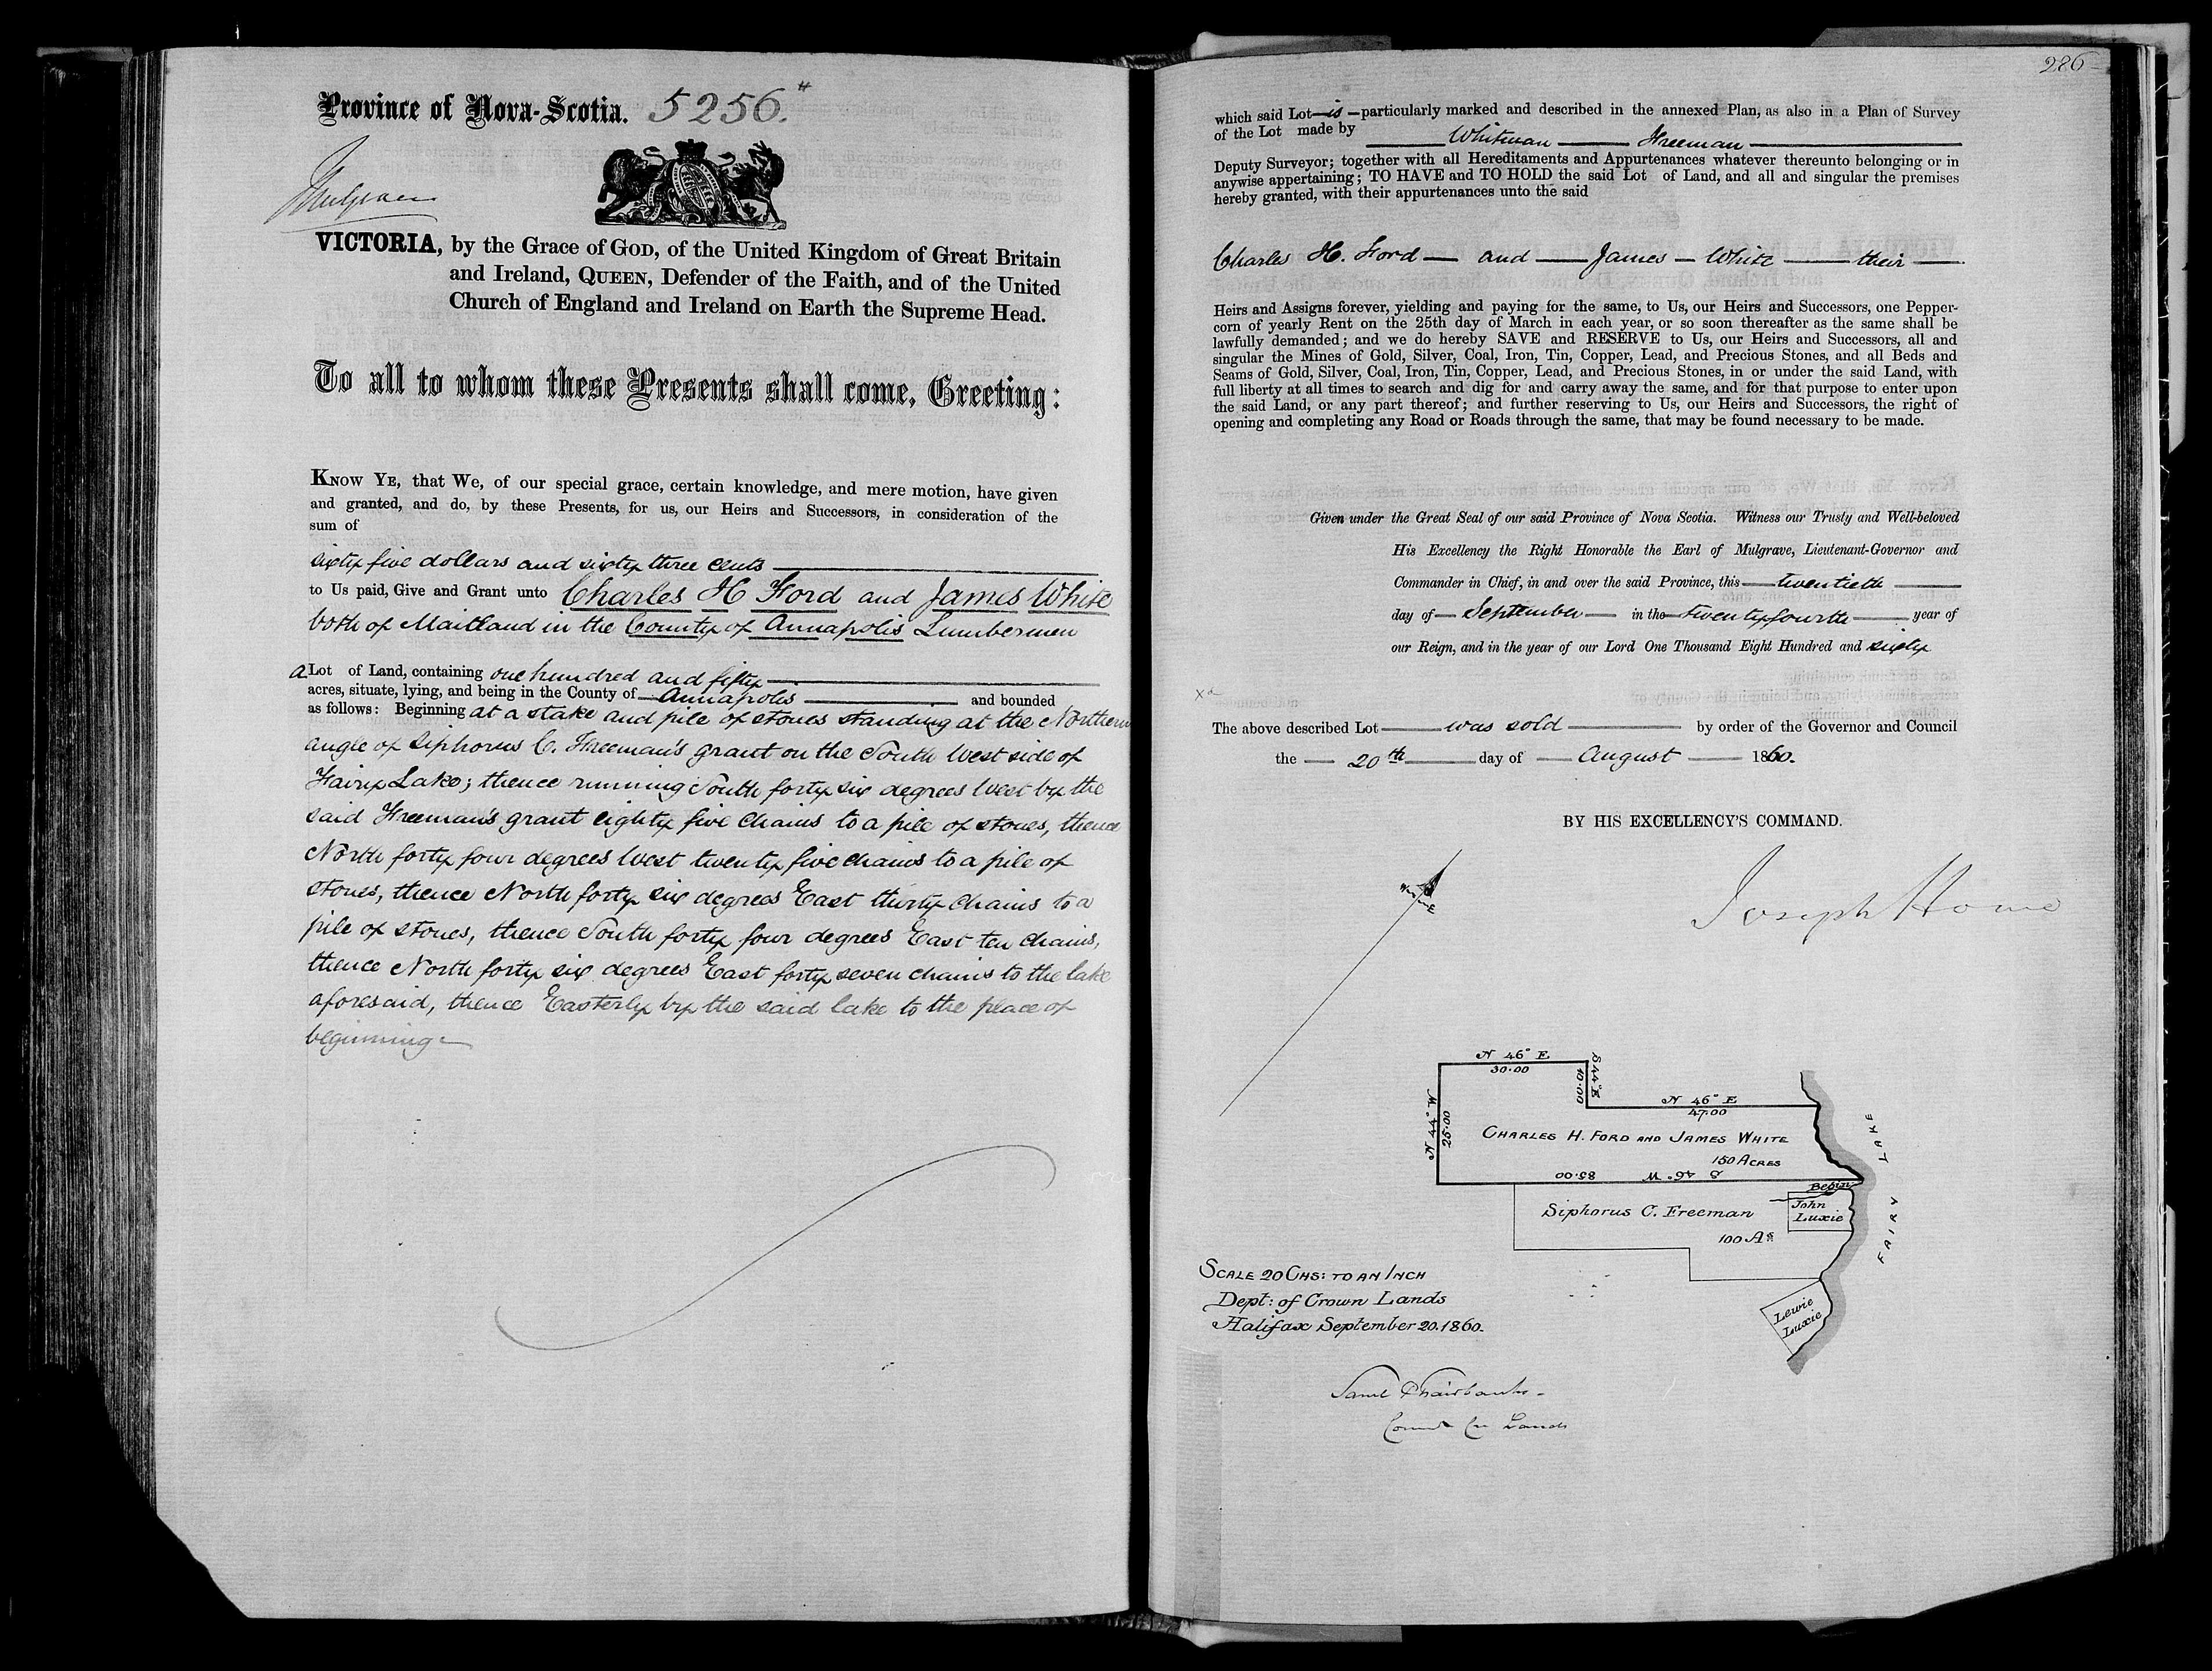 Province of Nova-Scotia. 5256.
Mulgrave
VICTORIA, by the Grace of GOD, of the United Kingdom of Great Britain
and Ireland, QUEEN, Defender of the Faith, and of the United
Church of England and Ireland on Earth the Supreme Head.
To all to whom these Presents shall come, Greeting:
KNOW YE, that We, of our special grace, certain knowledge, and mere motion, have given
and granted, and do, by these Presents, for us, our Heirs and Successors, in consideration of the
sum of
sixty five dollars and sixty three cents
to Us paid, Give and Grant unto Charles H Ford and James White
both of Maitland in the County of Annapolis Lumbermen
a Lot of Land, containing one hundred and fifty
acres, situate, lying, and being in the County of Annapolis and bounded
as follows: Beginning at a stake and pile of stones standing at the Northern
angle of Siphorus C. Freeman's grant on the South West side of
Fairy Lake; thence running South forty six degrees West by the
said Freeman's grant eighty five chains to a pile of stones, thence
North forty four degrees West twenty five chains to a pile of
stones, thence North forty six degrees East thirty chains to a
pile of stones, thence South forty four degrees East ten chains,
thence North forty six degrees East forty seven chains to the lake
aforesaid, thence Easterly by the said lake to the place of
beginning
286
which said Lot is particularly marked and described in the annexed Plan, as also in a Plan of Survey
of the Lot made by
Whitman Freeman
Deputy Surveyor; together with all Hereditaments and Appurtenances whatever thereunto belonging or in
anywise appertaining; TO HAVE and TO HOLD the said Lot of Land, and all and singular the premises
hereby granted, with their appurtenances unto the said
Charles H. Ford and James White their
Heirs and Assigns forever, yielding and paying for the same, to Us, our Heirs and Successors, one Pepper-
corn of yearly Rent on the 25th day of March in each year, or so soon thereafter as the same shall be
lawfully demanded; and we do hereby SAVE and RESERVE to Us, our Heirs and Successors, all and
singular the Mines of Gold, Silver, Coal, Iron, Tin, Copper, Lead, and Precious Stones, and all Beds and
Seams of Gold, Silver, Coal, Iron, Tin, Copper, Lead, and Precious Stones, in or under the said Land, with
full liberty at all times to search and dig for and carry away the same, and for that purpose to enter upon
the said Land, or any part thereof; and further reserving to Us, our Heirs and Successors, the right of
opening and completing any Road or Roads through the same, that may be found necessary to be made.
Given under the Great Seal of our said Province of Nova Scotia. Witness our Trusty and Well-beloved
His Excellency the Right Honorable the Earl of Mulgrave, Lieutenant-Governor and
Commander in Chief, in and over the said Province, this twentieth
day of September in the twenty fourth year of
our Reign, and in the year of our Lord One Thousand Eight Hundred and sixty
The above described Lot was sold by order of the Governor and Council
the 20th day of August 1860.
BY HIS EXCELLENCY'S COMMAND.
Joseph Howe
N 46° E
30.00
S 44° E
10.00
N 46° E
47.00
N 44° W
25.00
CHARLES H. FORD AND JAMES WHITE
150 ACRES
S 46° W
85.00
FAIRY LAKE
Begin
John
Luxie
Siphorus C. Freeman
100 As
Lewie
Luxie
SCALE 20 CHS: TO AN INCH
Dept: of Crown Lands
Halifax September 20. 1860.
Saml P Fairbanks
Comr Cr Lands